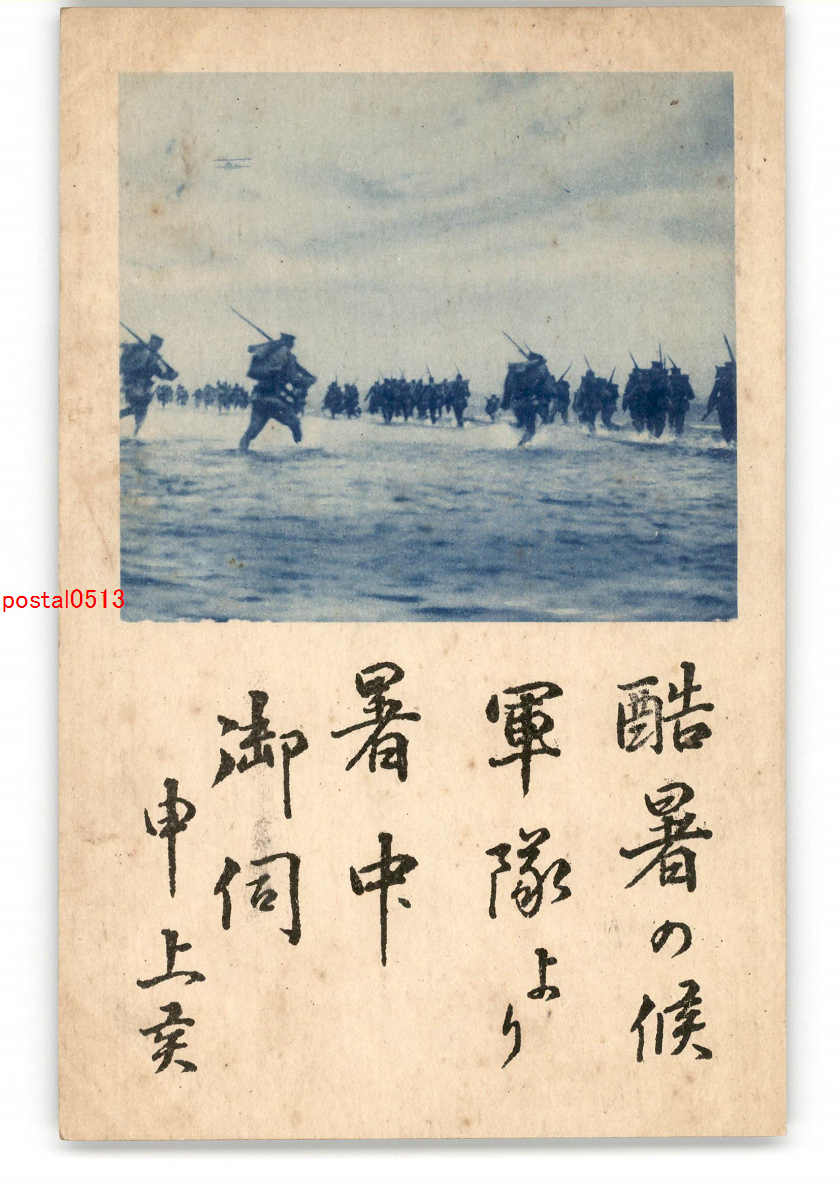 酷暑の候
軍隊より
暑中
御伺
申上候
postal0513